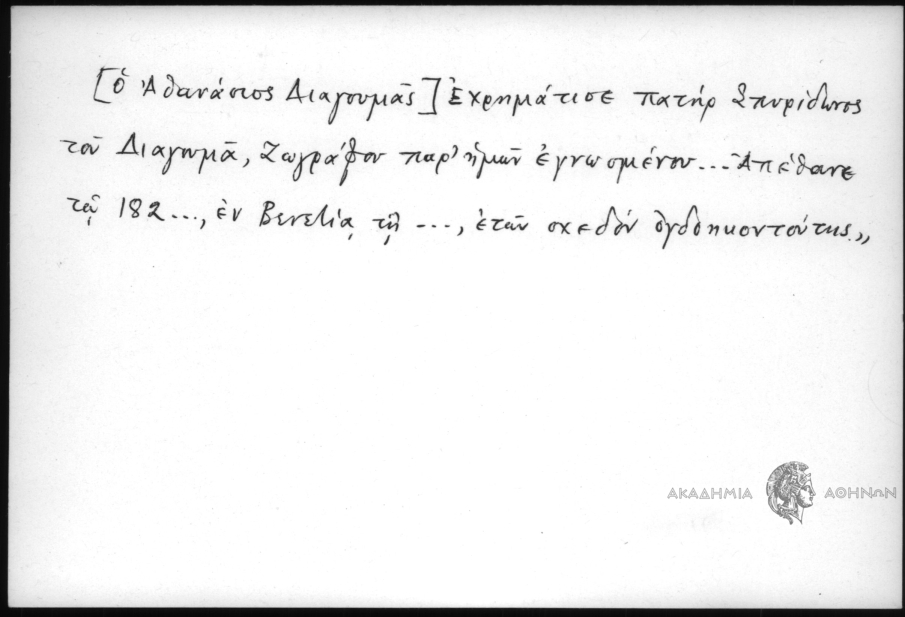 [ὁ Ἀθανάσιος Διαγουμᾶς] Ἐχρημάτισε πατήρ Σπυρίδωνος
τοῦ Διαγουμᾶ, Ζωγράφου παρ' ἡμῶν ἐγνωσμένου... Ἀπέθανε
τῷ 182..., ἐν Βενετίᾳ τῇ ..., ἐτῶν σχεδόν ὀγδοηκοντούτης.,,
ΑΚΑΔΗΜΙΑ ΑΘΗΝΩΝ